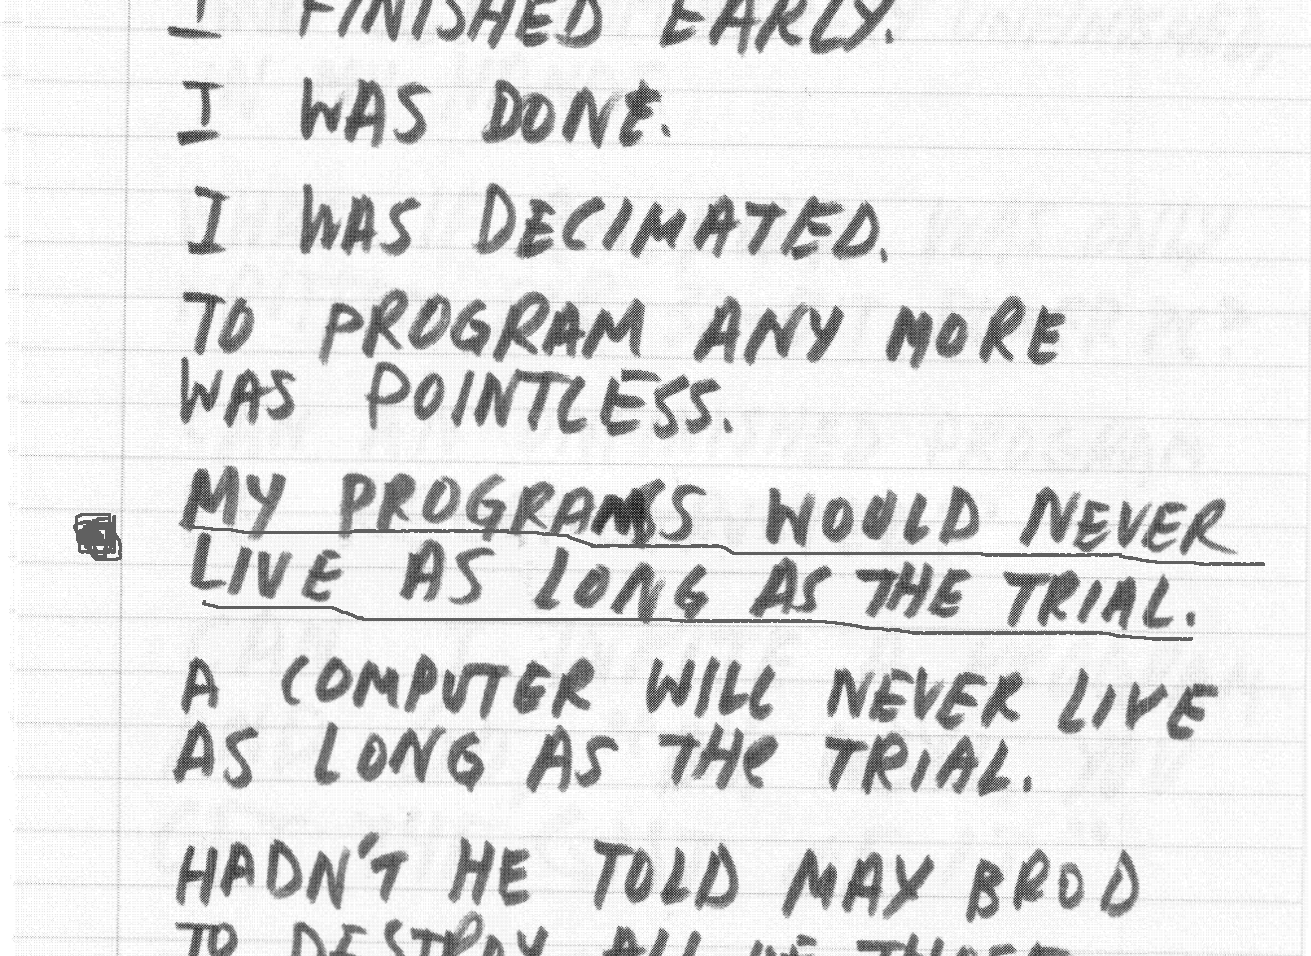 I FINISHED EARLY.
I WAS DONE.
I WAS DECIMATED.
TO PROGRAM ANY MORE
WAS POINTLESS.
MY PROGRAMS WOULD NEVER
LIVE AS LONG AS THE TRIAL.
A COMPUTER WILL NEVER LIVE
AS LONG AS THE TRIAL.
HADN'T HE TOLD MAY BROD
TO DESTROY ALL